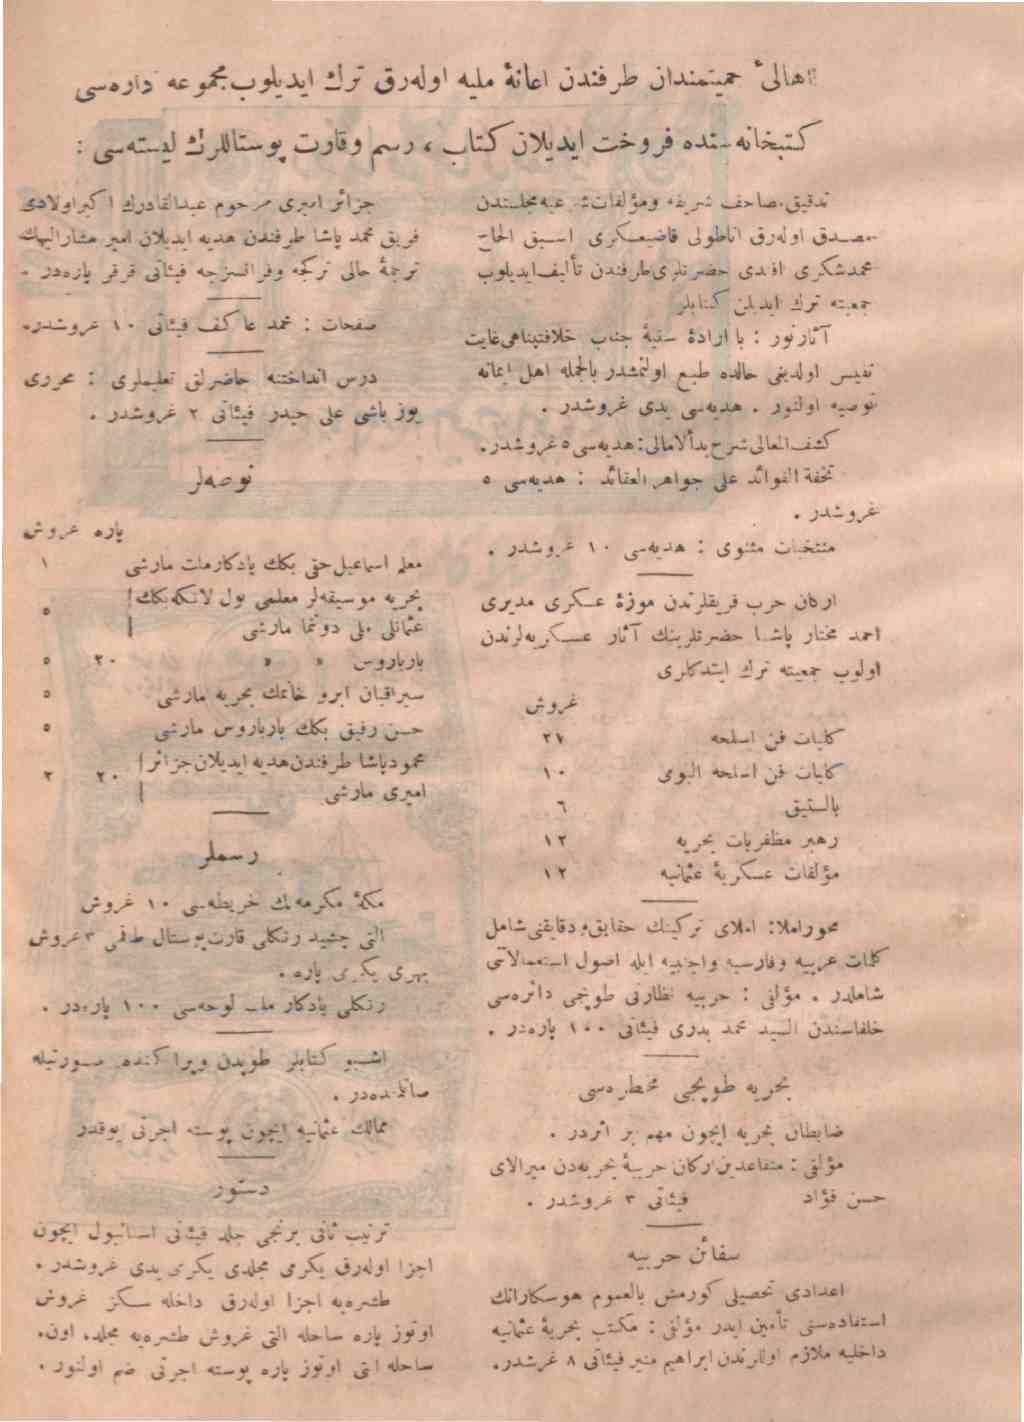 اهالیٔ حمیتمندان طرفندن اعانهٔ ملیه اوله‌رق ترك ایدیلوب مجموعه داره‌سی
كتبخانه‌سنده فروخت ایدیلان كتاب ، رسم وقارت پوستاللرك لیسته‌سی :
تدقیق مصاحف شریفه ومؤلفات شرعیه مجلسندن
مصدق اوله‌رق اناطولی قاضیعسكری اسبق الحاج
محمدشكری افندی حضرتلری طرفندن تألیف ایدیلوب
جمعیته ترك ایدیلن كتابلر
آثارنور : با ارادهٔ سنیهٔ جناب خلافتپناهی غایت
نفیس اولدیغی حالده طبع اولنمشدر بالجمله اهل ایمانه
توصیه اولنور . هدیه‌سی یدی غروشدر .
كشف المعالی شرح بدأالامالی : هدیه‌سی ٥ غروشدر.
تحفة الفوائد علی جواهر العقائد : هدیه‌سی ٥
غروشدر .
منتخبات مثنوی : هدیه‌سی ١٠ غروشدر .
اركان حرب فریقلرندن موزهٔ عسكری مدیری
احمد مختار پاشا حضرتلرینك آثار عسكریه‌لرندن
اولوب جمعیته ترك ایتدكلری
غروش
كلیات فن اسلحه ٢٧
كلیات فن اسلحه البومی ١٠
بالستیق ٦
رهبر مظفریات بحریه ١٢
مؤلفات عسكریهٔ عثمانیه ١٢
محوراملا : املای تركینك حقایق ودقایقنی شامل
كلمات عربیه وفارسیه واجنبیه ایله اصول استعمالاتی
شاملدر . مؤلفی : حربیه نظارتی طوپجی دائره‌سی
خلفاسندن السید محمد بدری فیئاتی ١٠٠ پاره‌در .
بحریه طوپجی مخطره‌سی
ضابطان بحریه ایچون مهم بر اثردر .
مؤلفی : متقاعدین اركان حربیهٔ بحریه‌دن میرالای
حسن فؤاد فیئاتی ٣ غروشدر .
سفائن حربیه
اعدادی تحصیلی كورمش بالعموم هوسكارانك
استفاده‌سنی تأمین ایدر مؤلفی : مكتب بحریهٔ عثمانیه
داخلیه ملازم اوللرندن ابراهیم منیر فیئاتی ٨ غرشدر.
جزائر امیری مرحوم عبدالقادرك اكبراولادی
فریق محمد پاشا طرفندن هدیه ایدیلان امیر مشارالیهك
ترجمهٔ حالی تركجه وفرانسزجه فیئاتی قرقر پاره‌در .
صفحات : محمد عاكف فیئاتی ١٠ غروشدر.
درس انداختنه حاضرلق تعلیملری : محرری
یوز باشی علی حیدر فیئاتی ٢ غروشدر .
نوطه‌لر
پاره غروش
معلم اسماعیل حقی بكك یادكارملت مارشی ١
بحریه موسیقه‌لر معلمی بول لانكه‌بكك
عثمانلی ملی دوننما مارشی ٥
بارباروس » » ٢٠ ٥
سیراقیان ابرو خانمك بحریه مارشی ٥
حسن رفیق بكك بارباروس مارشی ٥
محمودپاشا طرفندن هدیه ایدیلان جزائر
امیری مارشی ٢٠ ٢
رسملر
مكهٔ مكرمه‌نك خریطه‌سی ١٠ غروش
التی چشید رنكلی قارت‌پوستال طقمی ٣ غروش
بهری یكرمی پاره .
رنكلی یادكار ملت لوحه‌سی ١٠٠ پاره‌در .
اشبو كتابلر طوپدن وپراكنده صورتیله
صاتلمده‌در .
ممالك عثمانیه ایچون پوسته اجرتی یوقدر
دستور
ترتیب ثانی برنجی جلد فیئاتی استانبول ایچون
اجزا اوله‌رق یكرمی مجلدی یكرمی یدی غروشدر .
طشره‌یه اجزا اوله‌رق داخله سكز غروش
اوتوز پاره ساحله التی غروش طشره‌یه مجلد، اون،
ساحله التی اوتوز پاره پوسته اجرتی ضم اولنور .